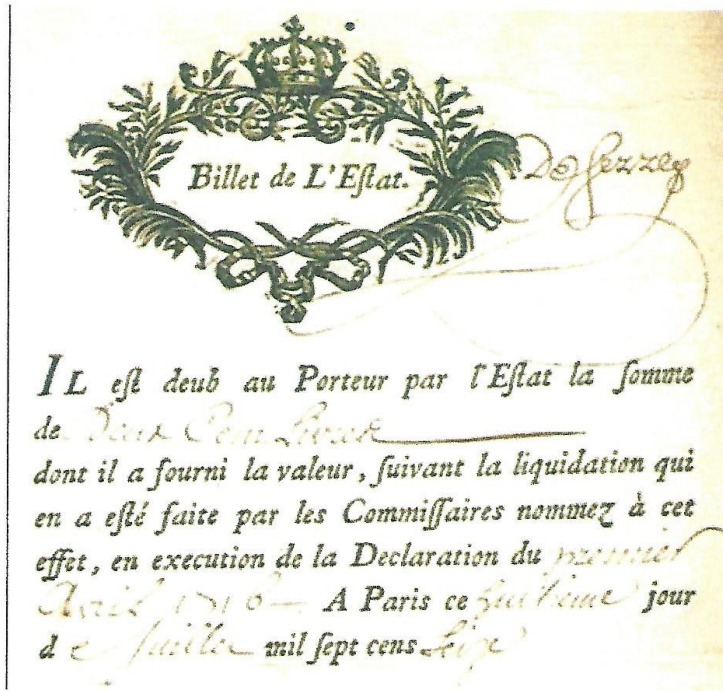 Billet de L'Eſtat.
IL eſt deub au Porteur par l'Eſtat la ſomme
de Deux Cent Livres
dont il a fourni la valeur, ſuivant la liquidation qui
en a eſté faite par les Commiſſaires nommez à cet
effet, en execution de la Declaration du premier
Avril 1716 A Paris ce huitieme jour
de Juillet mil ſept cens Seize